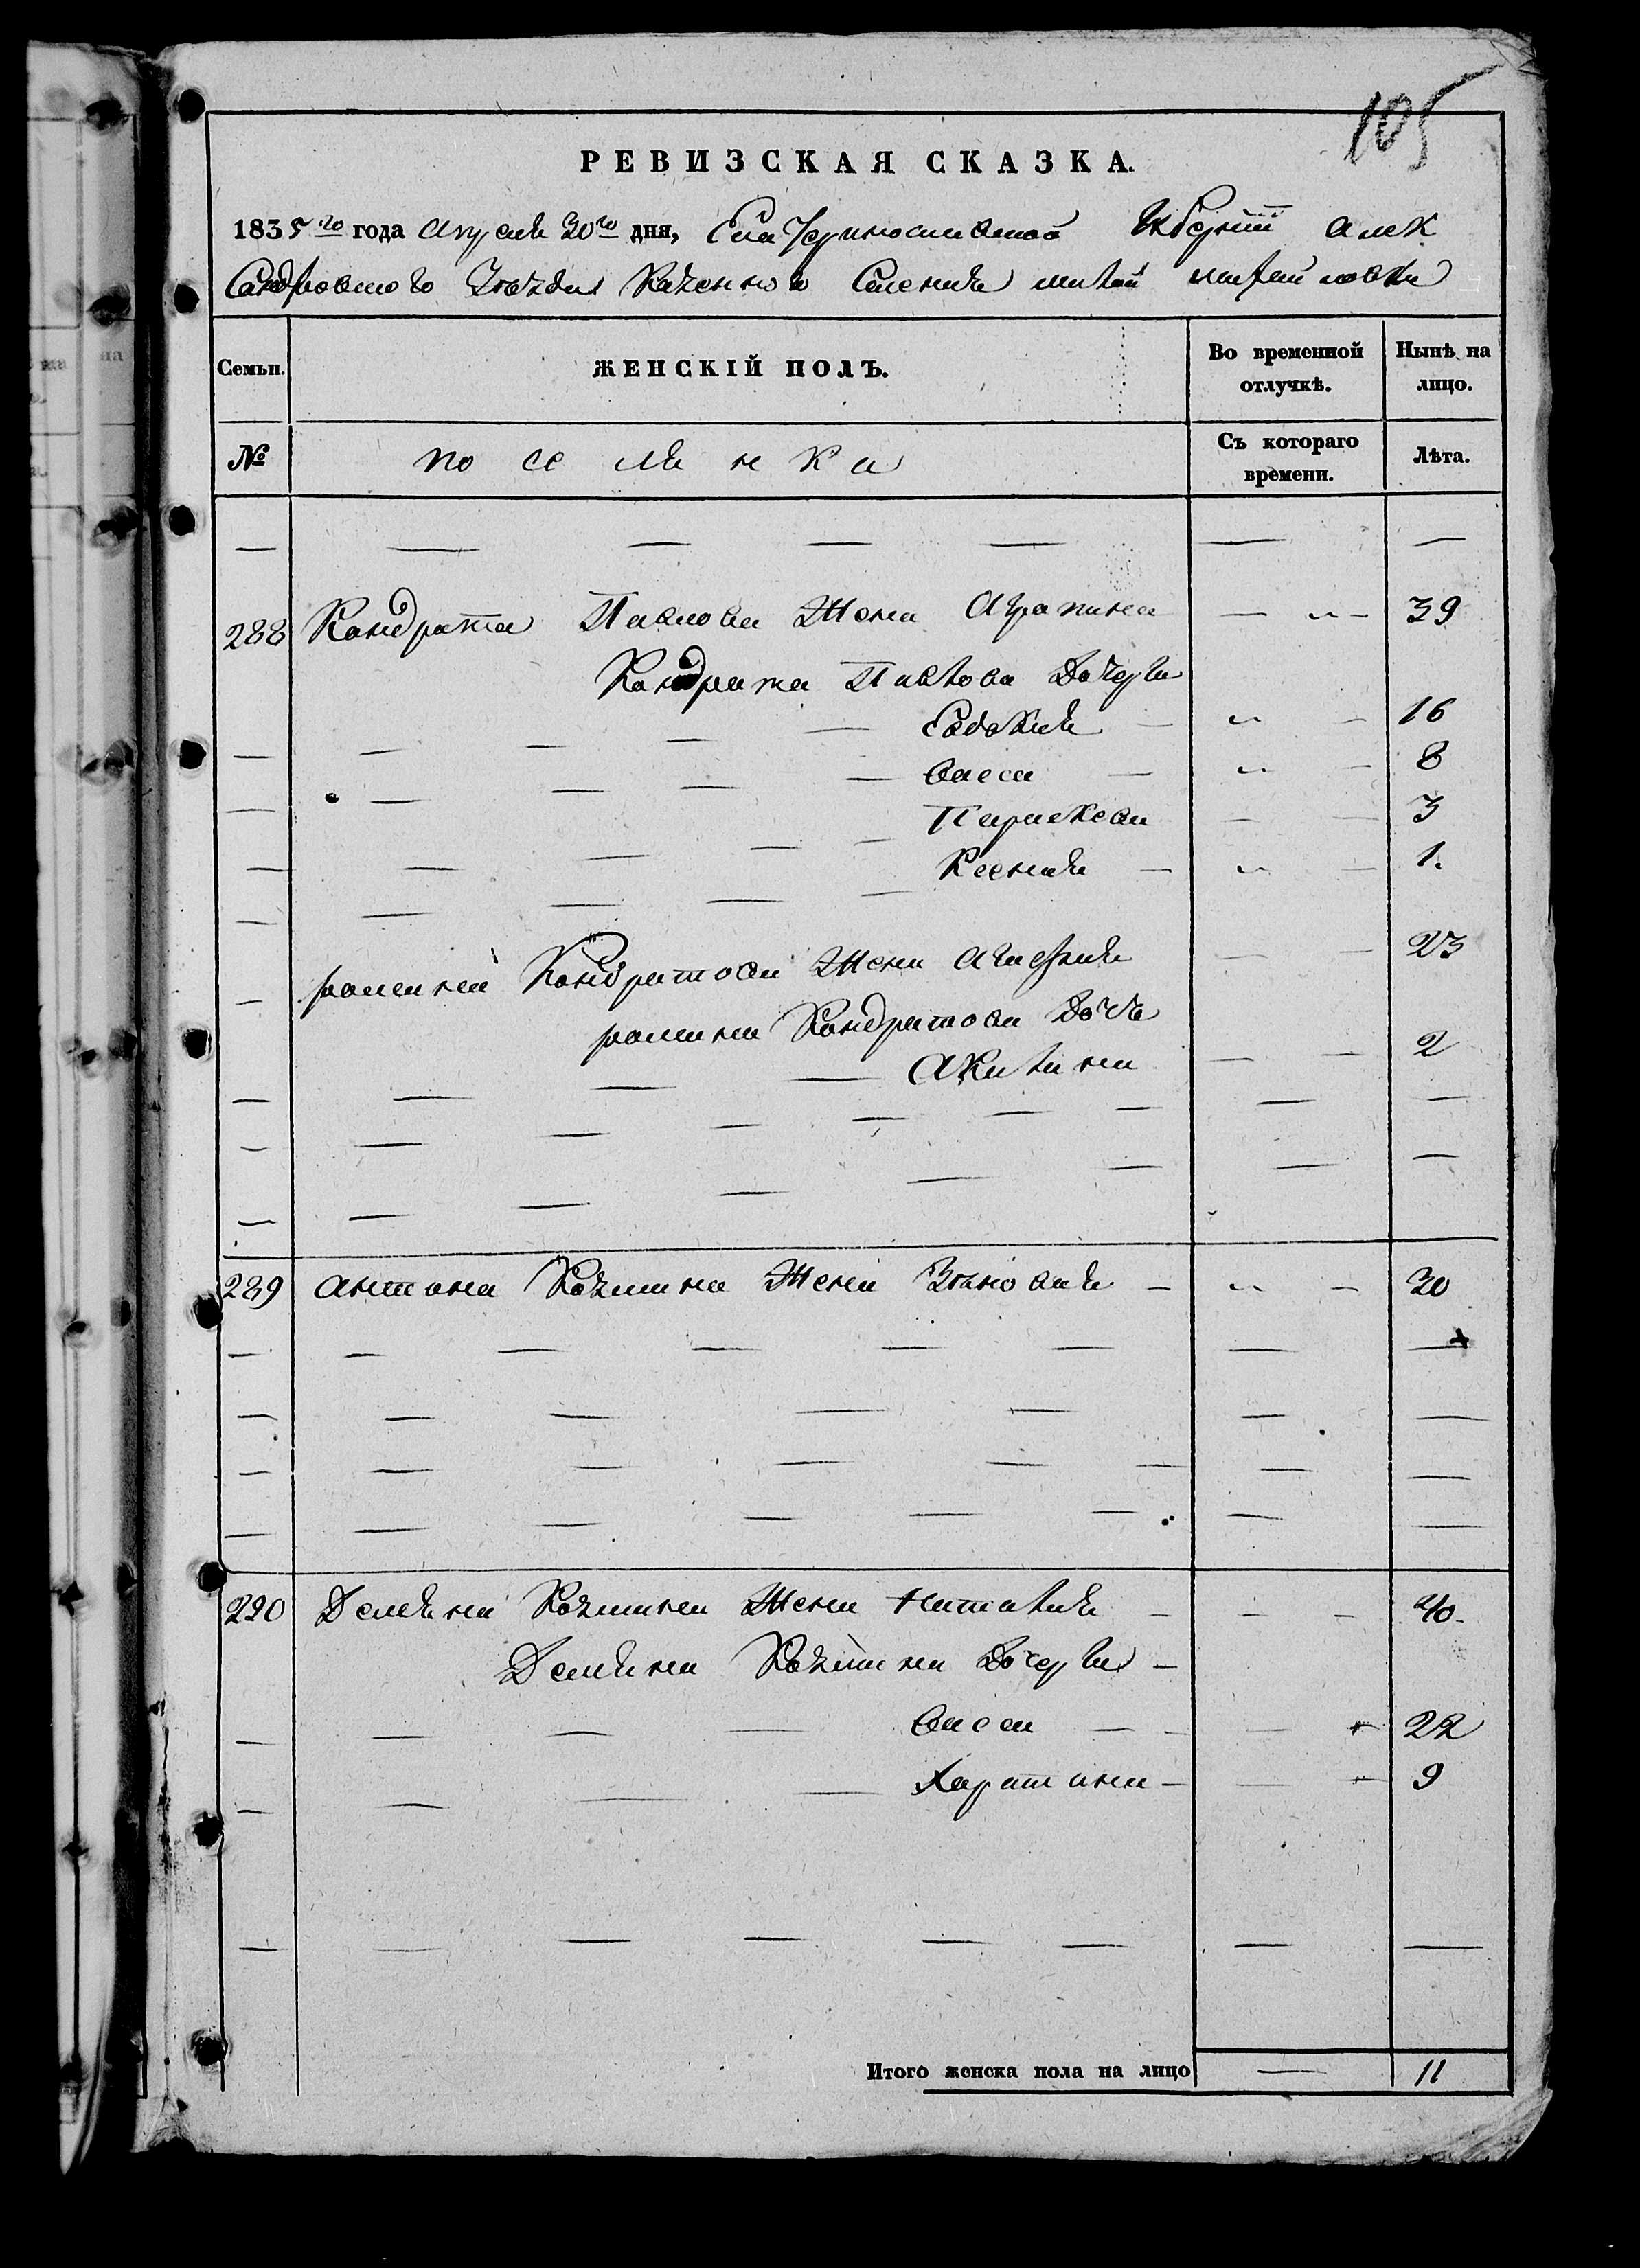 105
РЕВИЗСКАЯ СКАЗКА.
1835го года апреля 30го дня, Екатеринославской Губернии алек
сандровского Уезда Казенного Селения малой михайловки
Семьи. ЖЕНСКІЙ ПОЛЪ. Во временной отлучкѣ. Нынѣ на лицо.
№ поселянка Съ котораго времени. Лѣта.
288 Кондрата Павлова Жена Аграпина 39
Кондрата Павлова Дочери
Евдокия 16
Васса 8
Параскева 3
Ксения 1.
романа Кондратова Жена Агафия 23
романа Кондратова Дочь
Акилина 2
289 антона Козмина Жена Зѣновия 30
290 Демяна Козмина Жена Наталия 40
Демяна Козмина Дочери
Васса 22
Харитина 9
Итого женска пола на лицо 11